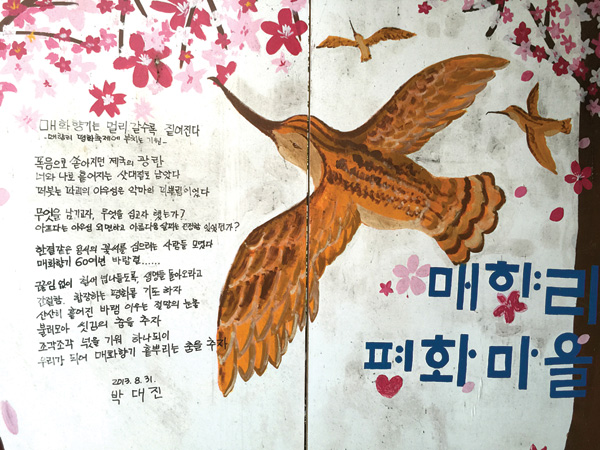 매화향기는 멀리 갈수록 짙어진다
-매향리 평화축제에 부치는 기원-
폭음으로 쏟아지던 제국의 광란
너와 나로 흩어지는 삿대질로 남았다
악마의
무엇을 남기고자, 무엇을 심고자 했는가?
아프다는 아우성 외면하고
한결같은 용서의 꽃씨를 심으려는 사람들 모였다
매화향기 60여년 바람결......
끊임없이 넘나들도록, 생명들 돌아오라고
간절함, 합장하는 평화를 기도하자
산산히 흩어진 바램 이루는 절망의 눈물
불러모아 씻김의 춤을 추자
조각조각 넋을 기워 하나되이
우리가 되어 매화향기 흩뿌리는 춤을 추자
2013. 8. 31.
박대진
매향리
평화마을